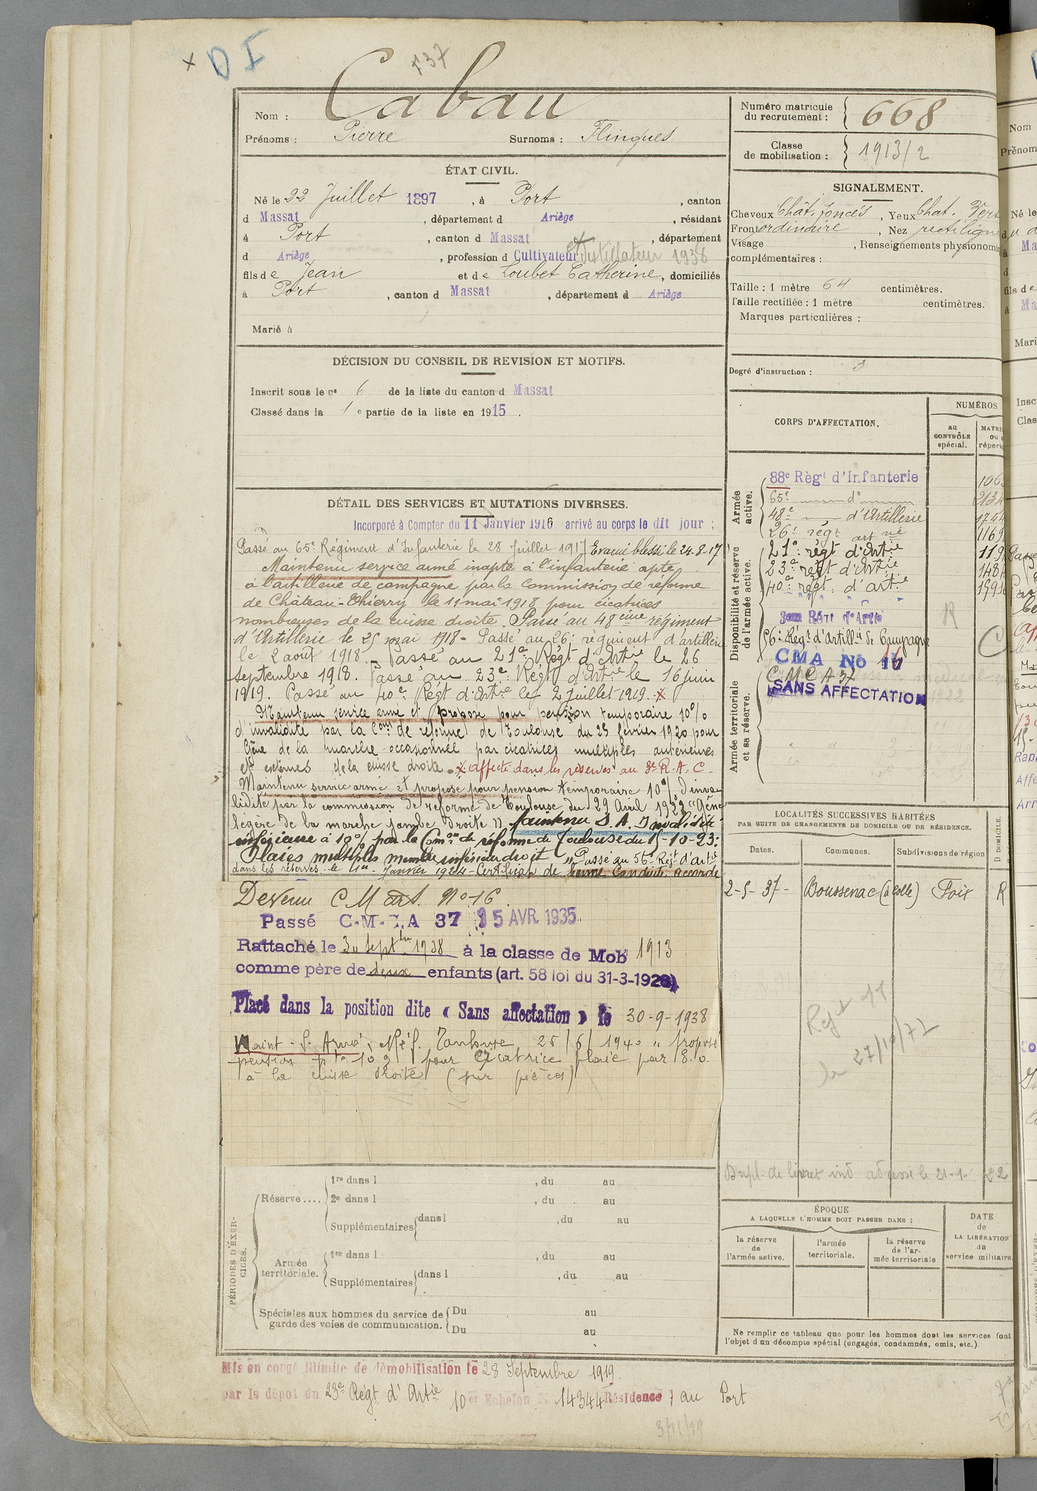 x D I 737
Nom : Cabau
Prénoms : Pierre Surnoms : Flingués
Numéro matricule du recrutement : 668
Classe de mobilisation : 1913/2
ÉTAT CIVIL.
Né le 22 Juillet 1897, à Port, canton
d Massat, département d Ariège, résidant
à Port, canton d Massat, département
d Ariège, profession d Cultivateur et Distillateur 1938
fils de Jean et de Loubet Catherine, domiciliés
à Port, canton d Massat, département d Ariège
Marié à
SIGNALEMENT.
Cheveux Chât. foncés, Yeux Chat. Vers
Front ordinaire, Nez rectiligne
Visage , Renseignements physionomi
complémentaires :
Taille : 1 mètre 64 centimètres.
Taille rectifiée : 1 mètre centimètres.
Marques particulières :
Degré d'instruction : 3
DÉCISION DU CONSEIL DE REVISION ET MOTIFS.
Inscrit sous le n° 6 de la liste du canton d Massat
Classé dans la 1e partie de la liste en 1915.
DÉTAIL DES SERVICES ET MUTATIONS DIVERSES.
Incorporé à Compter du 11 Janvier 1916 arrivé au corps le dit jour ;
Passé au 65e Régiment d'Infanterie le 28 Juillet 1917 Evacué blessé le 24.8.17
Maintenu service armé inapte à l'infanterie apte
à l'artillerie de campagne par la Commission de réforme
de Château-Thierry le 11 mai 1918 pour cicatrices
nombreuses de la cuisse droite. Passé au 48eme régiment
d'Artillerie le 25 mai 1918 - Passé au 26e régiment d'artillerie
le 2 août 1918. Passé au 21e Régt d'Artie le 26
septembre 1918. Passé au 23e Régt d'Artie le 16 juin
1919. Passé au 40e Régt d'Artie le 2 Juillet 1919. x
Maintenu service armé et proposé pour pension temporaire 10%
d'invalidité par la Comon de réforme de Toulouse du 23 février 1920 pour
Gêne de la marche occasionnée par cicatrices multiples antérieures
et externes de la cuisse droite. x affecté dans les réserves au 3e R.A.C.
Maintenu service armé et proposé pour pension temporaire 10% d'inva-
lidité par la commission de réforme de Toulouse du 29 Avril 1922 "Gêne
légère de la marche jambe droite" Maintenu S.A. Invalidité
inférieure à 10% par la Comon de réforme de Toulouse du 15-10-23:
Plaies multiples membre inférieur droit". Passé au 56e Régt d'artie
dans les réserves le 1er Janvier 1924 - Certificat de bonne conduite accordé
Devenu C M art. No 16
Passé C-M-I-A 37 25 AVR. 1935
Rattaché le 30 Septbre 1938 à la classe de Mob 1913
comme père de deux enfants (art. 58 loi du 31-3-1928)
Placé dans la position dite « Sans affectation » le 30-9-1938
Maint. S. Armé, Réf. Toulouse, 25/6/1940 " proposé
pension pte 10% pour cicatrice plaie par B.O.
à la cuisse droite (sur pièces)
CORPS D'AFFECTATION.
NUMÉROS
au CONTRÔLE spécial.
Armée active.
88e Régt d'Infanterie
65e d°
48e d'Artillerie
26e régt
Disponibilité et réserve de l'armée active.
21e régt d'Artie
23e régt d'Artie
40e régt d'artie
56e Régt d'Artillie de Campagne
CMA No 16
Armée territoriale et sa réserve.
C M C A 37
SANS AFFECTATION
LOCALITÉS SUCCESSIVES HABITÉES
PAR SUITE DE CHANGEMENTS DE DOMICILE OU DE RÉSIDENCE.
Dates. Communes. Subdivisions de région D DOMICILE.
2-5-37- Boussenac Foix R
27/10/72
Dupl. de livret ind adressé le 21-1- 22
PÉRIODES D'EXERCICES.
Réserve .... 1re dans l , du au
2e dans l , du au
Supplémentaires dans l , du au
Armée territoriale. 1re dans l , du au
Supplémentaires dans l , du au
Spéciales aux hommes du service de garde des voies de communication. Du au
Du au
ÉPOQUE
A LAQUELLE L'HOMME DOIT PASSER DANS :
la réserve de l'armée active.
l'armée territoriale.
la réserve de l'armée territoriale
DATE de LA LIBÉRATION du service militaire
Ne remplir ce tableau que pour les hommes dont les services font
l'objet d'un décompte spécial (engagés, condamnés, omis, etc.)
Mis en congé illimité de démobilisation le 28 Septembre 1919
par le dépôt du 23e Régt d'Artie 10er Echelon N° 14344 Résidence : au Port